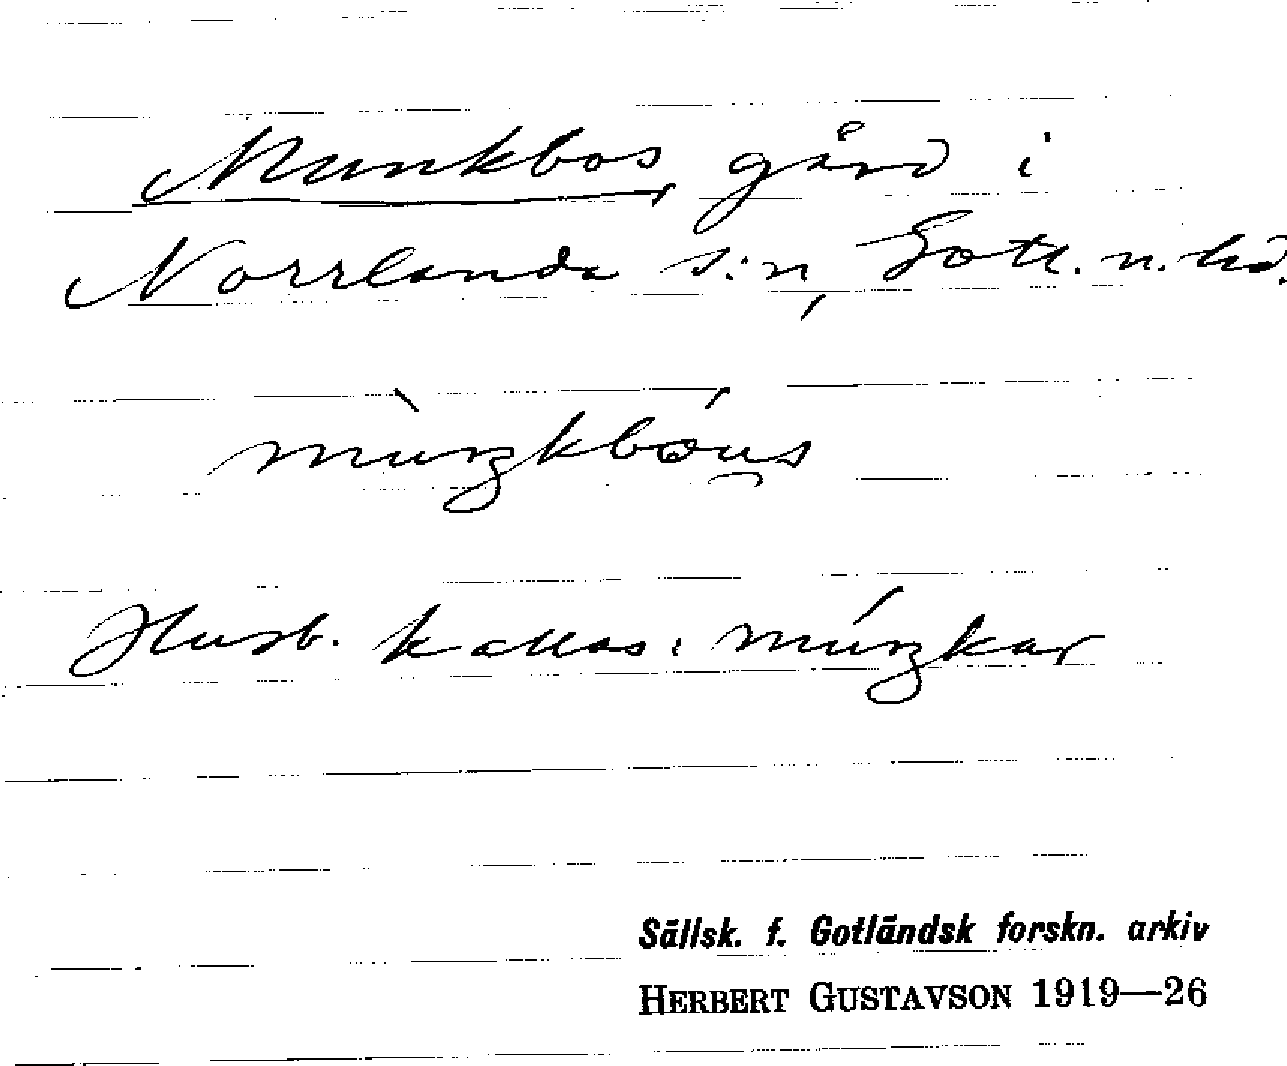 Munkbos, gård i
Norrlanda s:n, Gotl. n. hd.
mùŋkbóu̯s
Husb. kallas: múŋkar
Sällsk. f. Gotländsk forskn. arkiv
HERBERT GUSTAVSON 1919—26